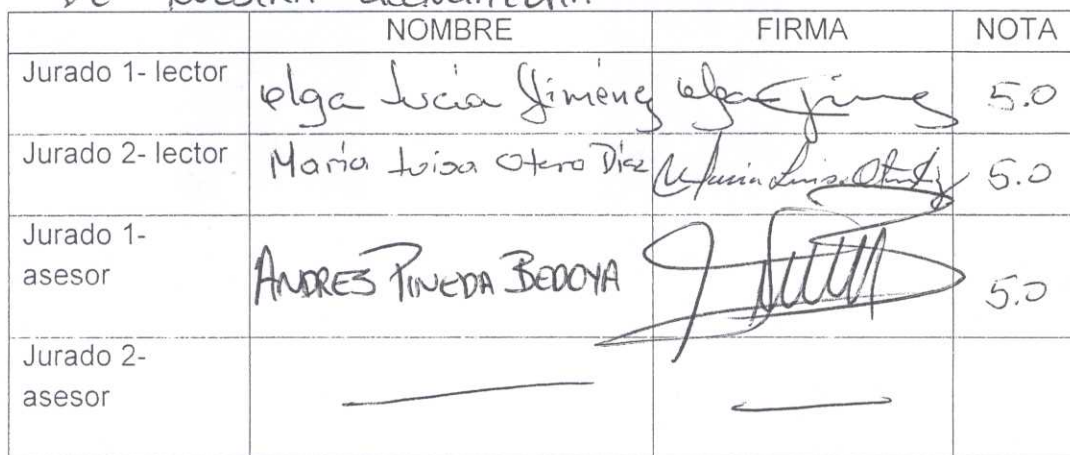 NOMBRE FIRMA NOTA
Jurado 1- lector Olga Lucía Jiménez Olga Jimenez 5.0
Jurado 2- lector María Luisa Otero Díaz María Luisa Otero 5.0
Jurado 1-
asesor ANDRES PINEDA BEDOYA 5.0
Jurado 2-
asesor